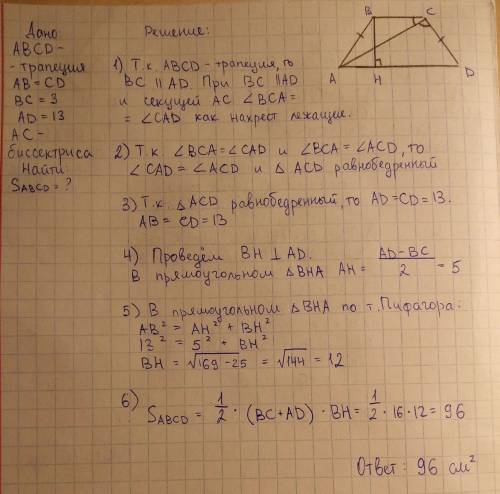 Дано
ABCD -
- трапеция
AB = CD
BC = 3
AD = 13
AC -
биссектриса
Найти
S_ABCD = ?
Решение:
B
C
A
H
D
1) Т.к. ABCD - трапеция, то
BC || AD. При BC || AD
и секущей AC ∠BCA =
= ∠CAD как накрест лежащие.
2) Т.к. ∠BCA = ∠CAD и ∠BCA = ∠ACD, то
∠CAD = ∠ACD и △ ACD равнобедренный
3) Т.к. △ACD равнобедренный, то AD = CD = 13.
AB = CD = 13
4) Проведём BH ⊥ AD.
В прямоугольном △BHA AH = (AD - BC)/2 = 5
5) В прямоугольном △BHA по т. Пифагора:
AB² = AH² + BH²
13² = 5² + BH²
BH = √(169 - 25) = √144 = 12
6) S_ABCD = 1/2 · (BC + AD) · BH = 1/2 · 16 · 12 = 96
Ответ: 96 см²